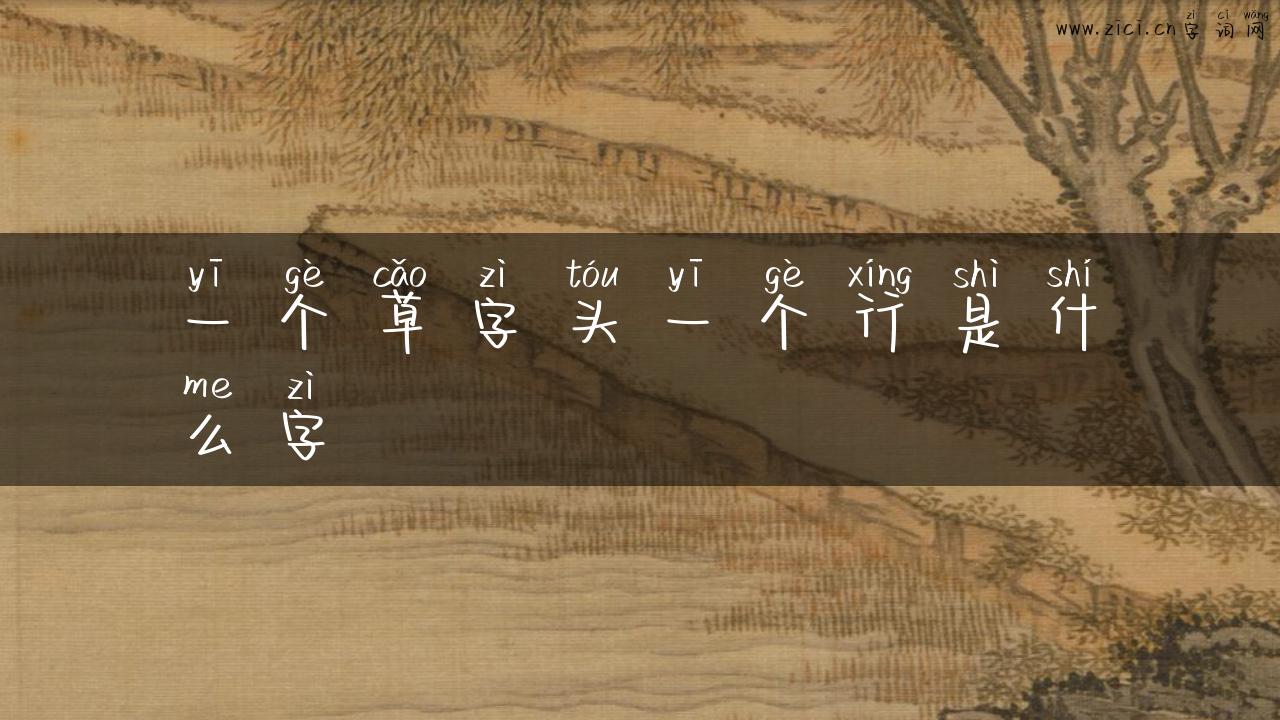 zì cí wǎng
www.zici.cn 字 词 网
yī gè cǎo zì tóu yī gè xíng shì shí
一 个 草 字 头 一 个 行 是 什
me zì
么 字